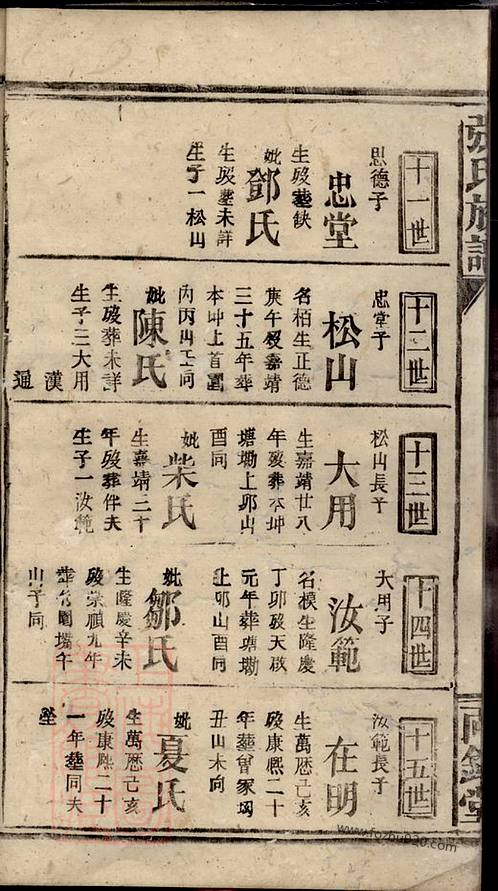 張氏族譜
十一世
思德子
忠堂
生歿塟缺
妣鄧氏
生歿塟未詳
生子一松山
十二世
忠堂子
松山
名栢生正德
庚午歿嘉靖
三十五年葬
本坤上首
向丙山壬向
妣陳氏
生歿葬未詳
生子三大用
漢
通
十三世
松山長子
大用
生嘉靖廿八
年歿葬本坤
塘坳上卯山
酉向
妣柴氏
生嘉靖三十
年歿葬伴夫
生子一汝範
十四世
大用子
汝範
名模生隆慶
丁卯歿天啟
元年葬塘坳
上卯山酉向
妣鄒氏
生隆慶辛未
歿崇禎九年
葬 園塘午
山子向
十五世
汝範長子
在明
生萬曆己亥
歿康熙二十
年塟曾家坳
丑山未向
妣夏氏
生萬曆己亥
歿康熙二十
一年塟同夫
塋
www.fozhu920.com